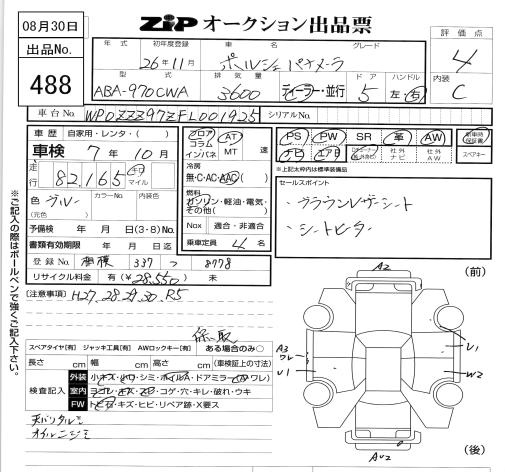 08月30日
ZIP オークション出品票
出品No.
488
年式 初年度登録 車名 グレード 評価点
26年11月 ポルシェ パナメーラ 4
型式 排気量 ドア ハンドル 内装
ABA-970CWA 3600 ディーラー・並行 5 左・右 C
車台No. WP0ZZZ97ZFL001925 シリアルNo.
車歴 自家用・レンタ・( ) フロア コラム インパネ AT MT 速
PS PW SR 革 AW 新車時保証書
ナビ エアB 社外ナビ 社外AW スペアキー
車検 7年10月
※上記太枠内は標準装備品
走行 82,165 km マイル
冷房 無・C・AC・AAC( )
セールスポイント
色 グレー カラーNo. 内装色
(元色)
燃料 ガソリン・軽油・電気・その他( )
・ブラウンレザーシート
・シートヒーター
予備検 年 月 日(3・8)No.
Nox 適合・非適合
書類有効期限 年 月 日迄
乗車定員 4名
登録No. 相模 337 つ 8778
リサイクル料金 有(¥28,550) 未
(注意事項) H27.28.29.30.R5
保、取
スペアタイヤ[有] ジャッキ工具[有] AWロックキー[有] ある場合のみ○
長さ cm 幅 cm 高さ cm (車検証上の寸法)
検査記入
外装 小キズ・小ワ・シミ・ホイルA・ドアミラー( ワレ)
室内 ヨゴレ・キズ・スレ・コゲ・穴・キレ・破れ・ウキ
FW トビ石・キズ・ヒビ・リペア跡・X要ス
天バリタルミ
オイルニジミ
※ご記入の際はボールペンで強くご記入下さい。
(前)
A2
A3
ワレ
U1
U1
W2
AU2
(後)